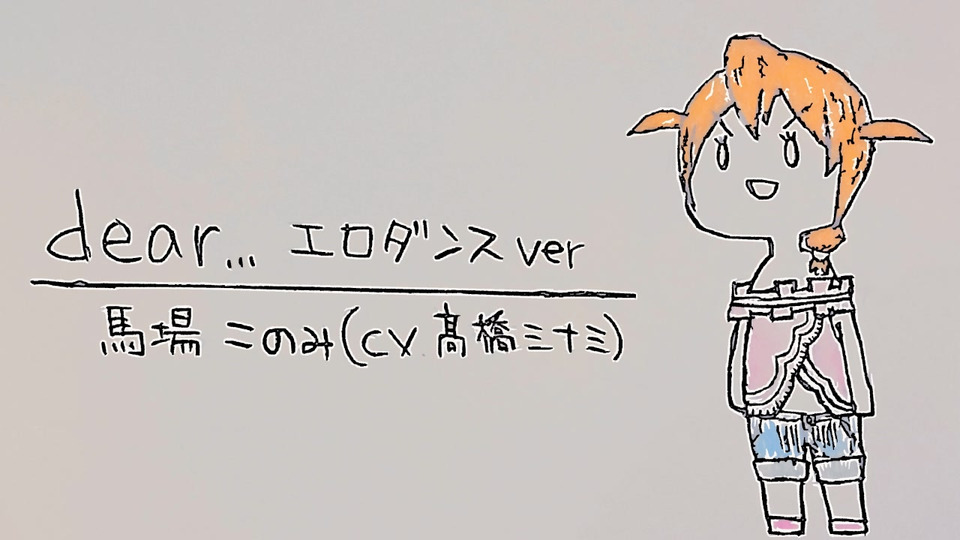 dear... エロダンス ver
馬場 このみ(CV 髙橋ミナミ)